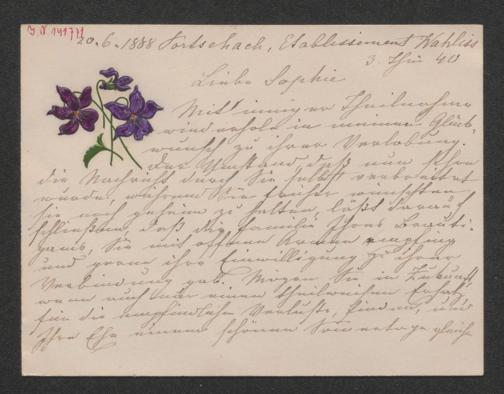 I. N. 141771
20.6.1888 Portschach, Etablissement Wahliss
3. Thür 40
Liebe Sophie
Mit inniger Theilnahme
wiederhole ich meinen Glück-
wunsch zu ihrer Verlobung.
Der Umstand, daß nun schon
die Nachricht durch Sie selbst verbreitet
wurde, während Sie früher wünschten,
sie noch geheim zu halten läßt darauf
schließen, daß die Familie Ihres Bräuti-
gams, Sie mit offenen Armen empfing
und gerne ihre Einwilligung zu ihrer
Verbindung gab. Mögen Sie in Zukunft,
wenn auch nur einen theilweisen Ersatz
für die empfindlichen Verluste, finden, und
Ihre Ehe einem schönen gleiche